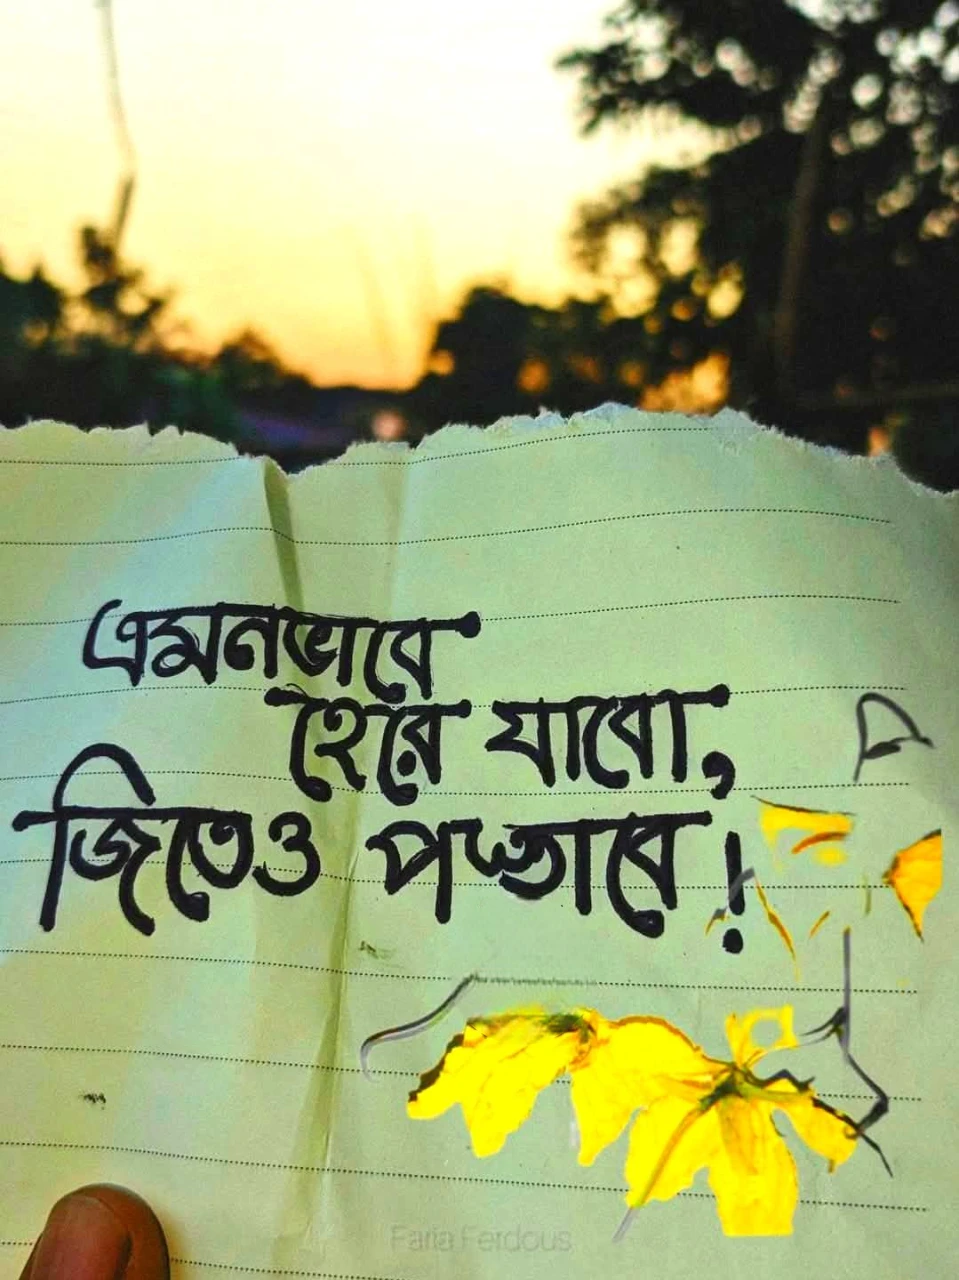 এমনভাবে
হেরে যাবো,
জিতেও পস্তাবে!
Faria Ferdous